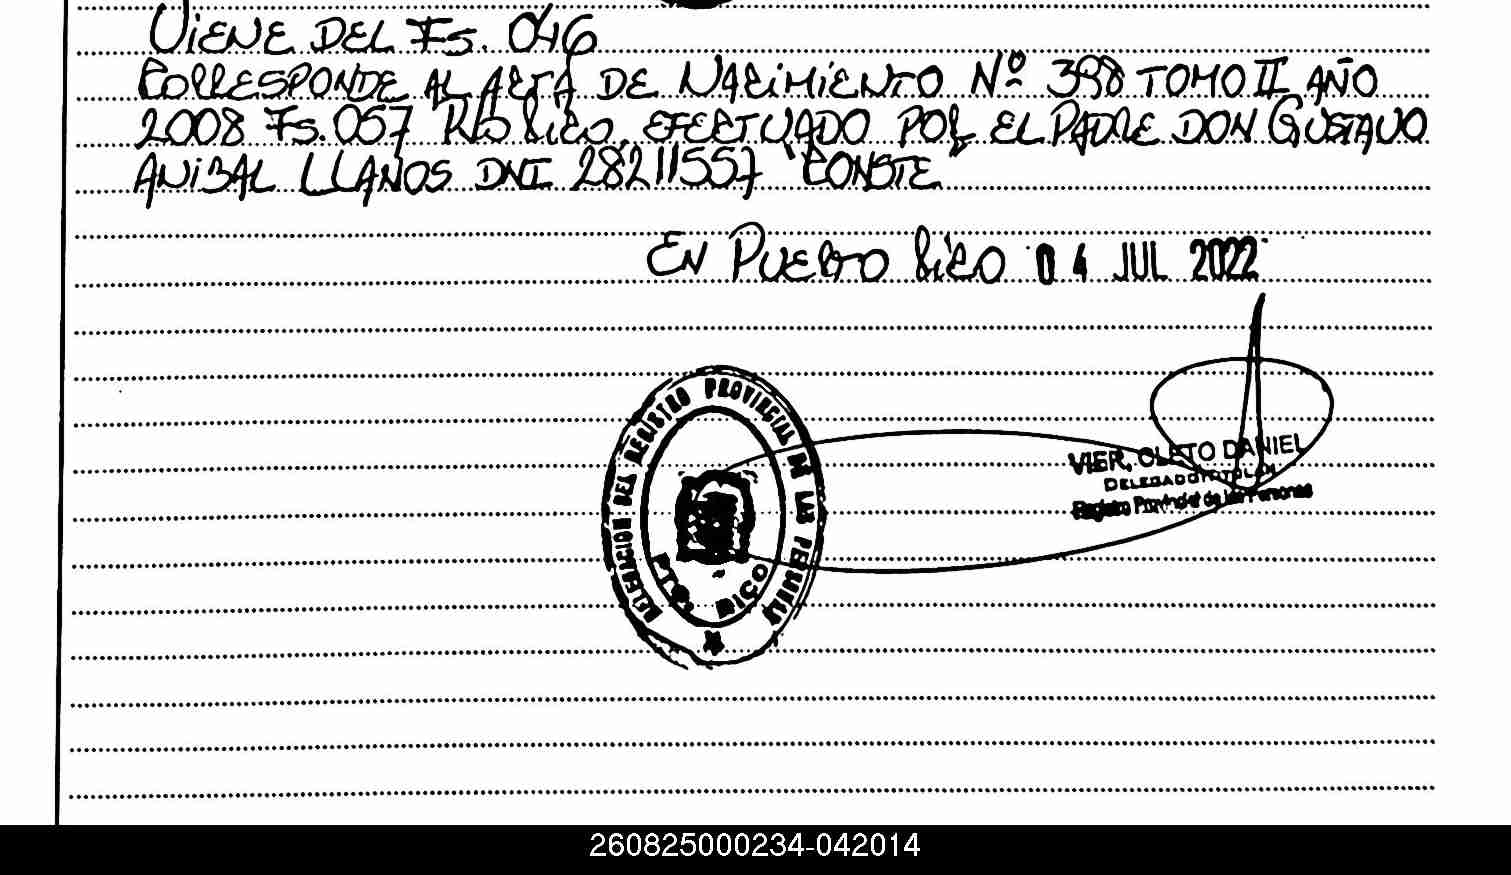 VIENE DEL Fs. 046
CORRESPONDE AL ACTA DE NACIMIENTO Nº 398 TOMO II AÑO
2008 Fs. 057 Pto Rico, EFECTUADO POR EL PADRE DON GUSTAVO
ANIBAL LLANOS DNI 28211557 "CONSTE"
EN PUERTO RICO 04 JUL 2022
DELEGACION DEL REGISTRO PROVINCIAL DE LAS PERSONAS
PTO. RICO
VIER, CLETO DANIEL
DELEGADO TITULAR
Registro Provincial de las Personas
260825000234-042014